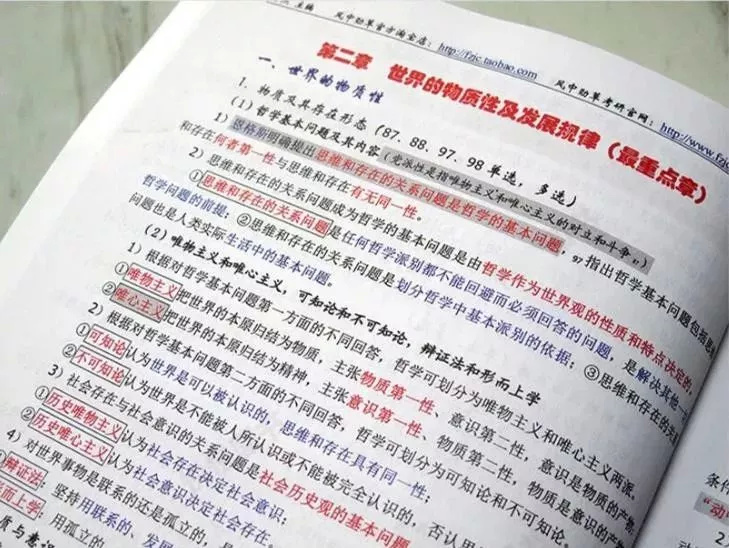 主编 风中劲草官方淘宝店：http://fzjc.taobao.com 风中劲草考研官网：http://www.fzjc
第二章 世界的物质性及发展规律（最重点章）
一、世界的物质性
1. 物质及其存在形态（87、88、97、98单选，多选）
（1）哲学基本问题及其内容（党派性是指唯物主义和唯心主义的对立和斗争）
1）恩格斯明确提出思维和存在的关系问题是哲学的基本问题，97指出哲学基本问题包括思维
和存在何者第一性与思维和存在有无同一性。
2）思维和存在的关系问题成为哲学的基本问题是由哲学作为世界观的性质和特点决定的，
①思维和存在的关系问题是任何哲学派别都不能回避而必须回答的问题，是解决其他一
哲学问题的前提；②思维和存在的关系问题是划分哲学中基本派别的依据；③思维和存在的关
问题也是人类实际生活中的基本问题。
（2）唯物主义和唯心主义，可知论和不可知论，辩证法和形而上学
1）根据对哲学基本问题第一方面的不同回答，哲学可划分为唯物主义和唯心主义两派。
①唯物主义把世界的本原归结为物质，主张物质第一性、意识第二性，意识是物质的产物
②唯心主义把世界的本原归结为精神，主张意识第一性、物质第二性，物质是意识的产
2）根据对哲学基本问题第二方面的不同回答，哲学可划分为可知论和不可知论。
①可知论认为世界是可以被认识的，思维和存在具有同一性；
②不可知论认为世界是不能被人所认识或不能被完全认识的，否认思
3）社会存在与社会意识的关系问题是社会历史观的基本问题
①历史唯物主义认为社会存在决定社会意识；
②历史唯心主义认为社会意识决定社会存在。
4）对世界事物是联系的还是孤立的、
辩证法：坚持用联系的、发展
而上学：用孤立的
质与意识
条件
“动
2